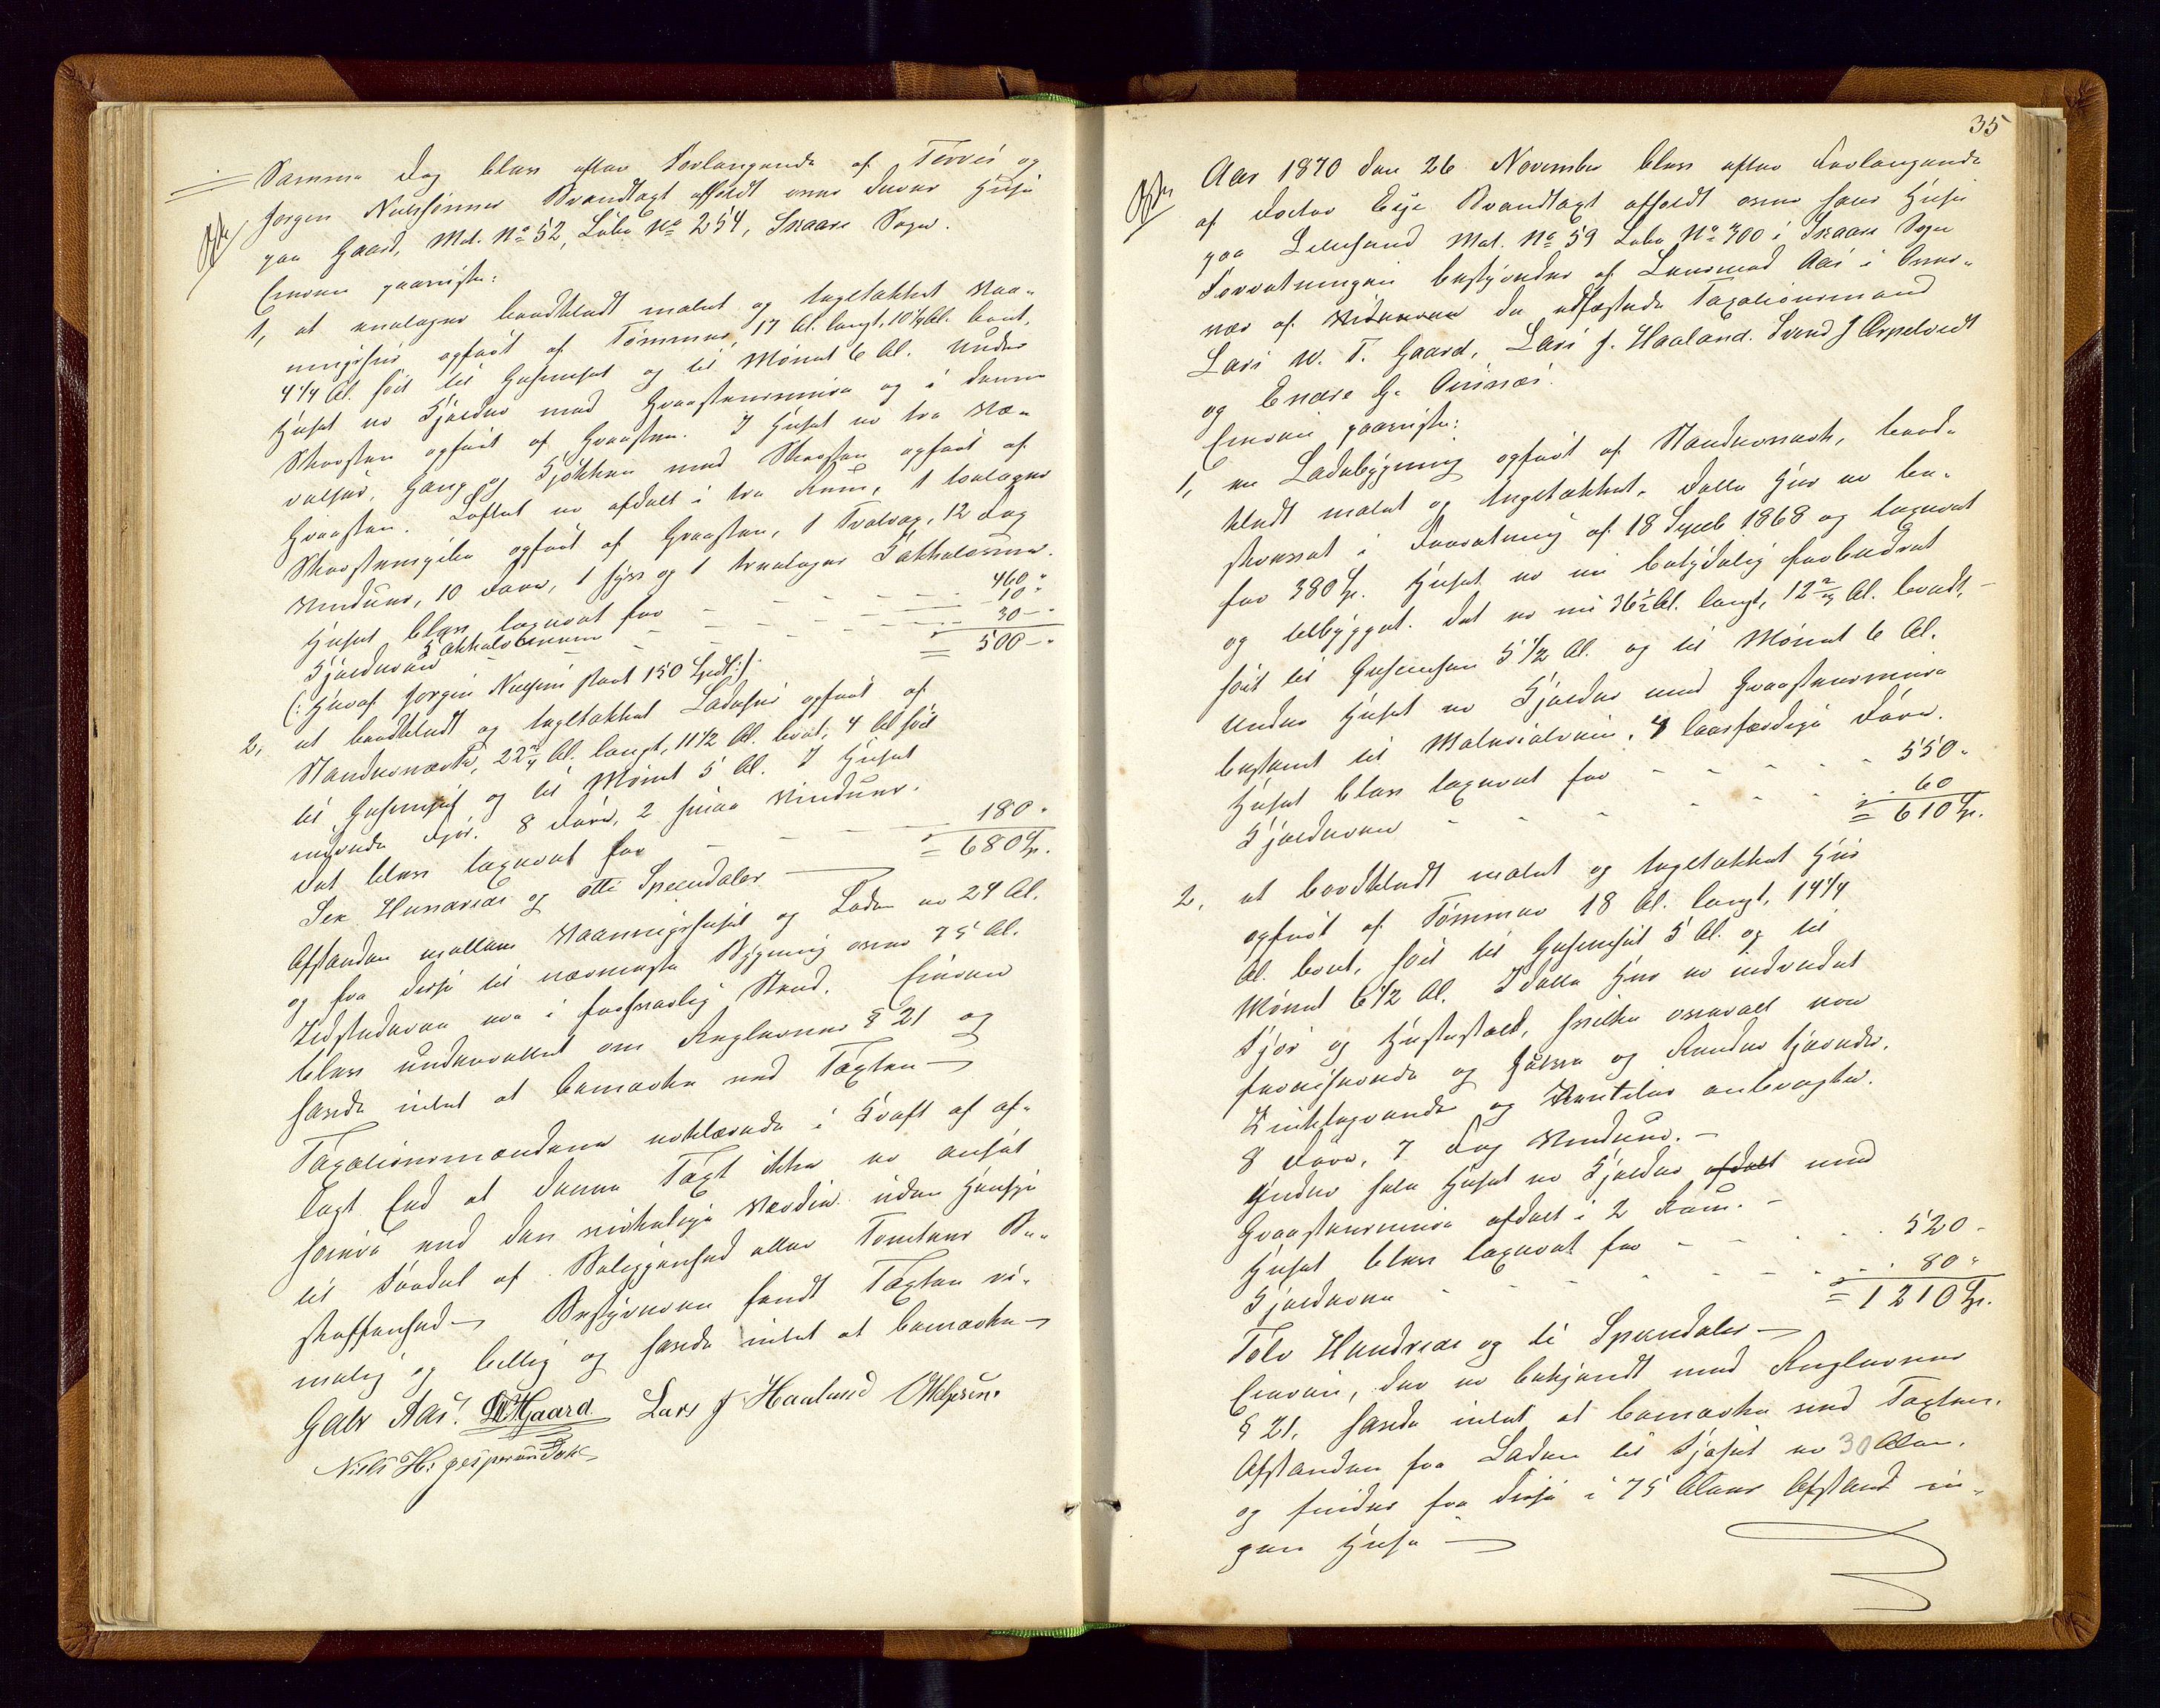 Samme Dag blev efter Forlangende af Torris og
Jørgen Nielsønner Brandtaxt afholdt over deres Huse
paa Gaard, Mat. No 52, Løbe No 254, Skaare Sogn.
Eieren paaviste:
1, et enetages bordklædt malet og tagltækket Vaa-
ningshus opført af Tømmer, 17 Al. langt, 10½ Al. bredt,
4¼ Al. høit til Gesimset og til Mønet 6 Al. Under
Huset er Kjelder med Graasteensmure og i denne
Skorsten opført af Graasten. I Huset er tre Væ-
relser, Gang og Kjøkken med Skorsten opført af
Graasten. Loftet er afdelt i tre Rum, 1 toetages
Skorstenspibe opført af Graasten, 1 Trætrap, 12 Fag
Vinduer, 10 Døre, 1 Hyr og 1 treetages Kakkelovn.
Huset blev taxeret for - - - 460 "
Kakkelovnene - - - 10 "
Kjælderen - - - 30 - "
= 500 - "
(: Heraf Jørgen Nielsens Part 150 Spdl :)
2, et bordklædt og tagltækket Ladehus opført af
Standerværk, 22¾ Al. langt, 11½ Al. bredt, 4 Al høit
til Gesimset og til Mønet 5 Al. I Huset
Fjøs. 8 Døre, 2 smaa Vinduer.
Det blev taxeret for - - - 180 "
= 680 Sp.
Sex Hundrede og otti Speciedaler
Afstanden mellem Vaaningshuset og Laden er 24 Al.
og fra disse til nærmeste Bygning over 75 Al.
Ildstederne var i forsvarlig Stand. Eieren
blev underrettet om Reglernes § 21 og
havde intet at bemærke ved Taxten
Taxationsmændene erklærede i Kraft af af-
lagt Eed at denne Taxt ikke er ansat
høiere end den virkelige Værdie uden Hensyn
til Fordel af Beliggenhed eller Tomtens Be-
skaffenhed. Bestyreren fandt Taxten ri-
melig og billig og havde intet at bemærke
Gabr Aas. LWTGaard Lars J Haaland
Niels H.
35
Aar 1870 den 26 November blev efter Forlangende
af Doctor Eye Brandtaxt afholdt over hans Huse
paa Lillesund Mat. No 59 Løbe No 300 i Skaare Sogn
Forretningen bestyredes af Lensmand Aas i Over-
vær af de edfæstede Taxationsmænd
Lars W. T. Gaard, Lars J. Haaland. Svend J Ørpetvedt
og Endre G. Quisnæs.
Eieren paaviste:
1, en Ladebygning opført af Standerværk, bord-
klædt malet og tagltækket. Dette Hus er be-
skrevet i Forretning af 18 Septb 1868 og taxeret
for 380 Sp. Huset er nu betydelig forbedret
og tilbygget. Det er nu 36½ Al. langt, 12⅔ Al. bredt,
høit til Gesimsen 5½ Al. og til Mønet 6 Al.
Under Huset er Kjelder med Graasteensmure
bestemt til Materialrum, 4 laasfærdige Døre.
Huset blev taxeret for - - - 550 "
Kjælderen - - - 60
= 610 Sp.
2, et bordklædt malet og tagltækket Hus
opført af Tømmer 18 Al. langt, 14¼
Al. bredt, høit til Gesimset 5 Al. og til
Mønet 6½ Al. I dette Hus er indredet
Fjøs og Hestestald, hvilke overalt ere
forsynede og Gulve og Render
og Ventiler anbragte.
8 Døre, 7 Fag Vinduer. -
Under hele Huset er Kjælder afdelt med
Graasteensmure afdelt i 2 Rum. -
Huset blev taxeret for - - - 520 -
Kjælderen - - - 80 "
= 1210 Sp.
Tolv Hundrede og ti Speciedaler
Eieren, der er bekjendt med Reglernes
§ 21, havde intet at bemærke ved Taxten.
Afstanden fra Laden til Fjøset er 30 Alen.
og findes fra disse i 75 Alens Afstand in-
gen Huse